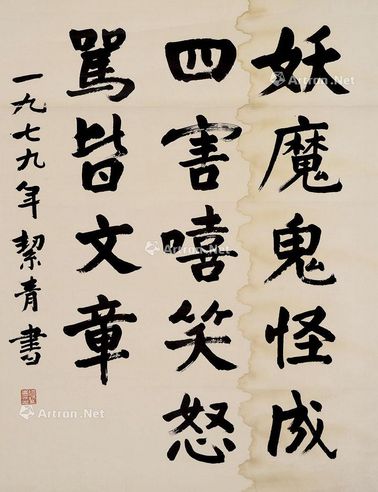 妖魔鬼怪成
四害嘻笑怒
骂皆文章
一九七九年絜青書
Artron.Net
Artron.Net
Artron.Net